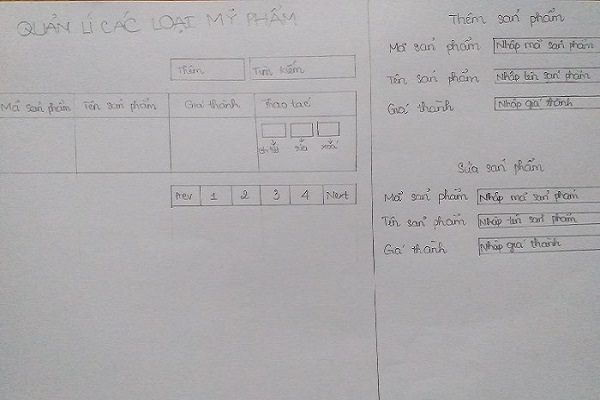 QUẢN LÍ CÁC LOẠI MỸ PHẨM
Thêm Tìm kiếm
Mã sản phẩm Tên sản phẩm Giá thành Thao tác
sửa xoá
Prev 1 2 3 4 Next
Thêm sản phẩm
Mã sản phẩm Nhập mã sản phẩm
Tên sản phẩm Nhập tên sản phẩm
Giá thành Nhập giá thành
Sửa sản phẩm
Mã sản phẩm Nhập mã sản phẩm
Tên sản phẩm Nhập tên sản phẩm
Giá thành Nhập giá thành